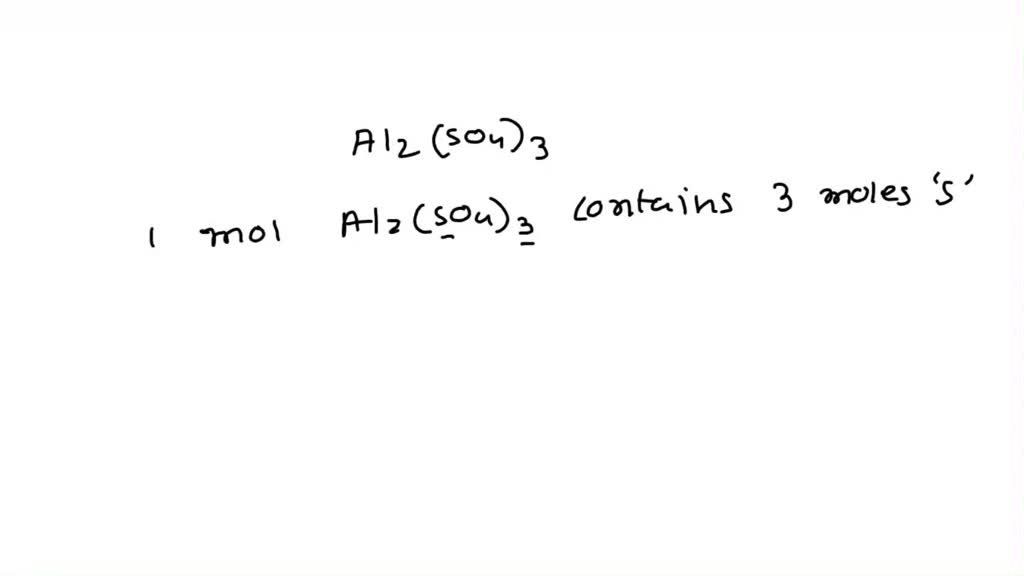 Al2(SO4)3
1 mol Al2(SO4)3 contains 3 moles 'S'